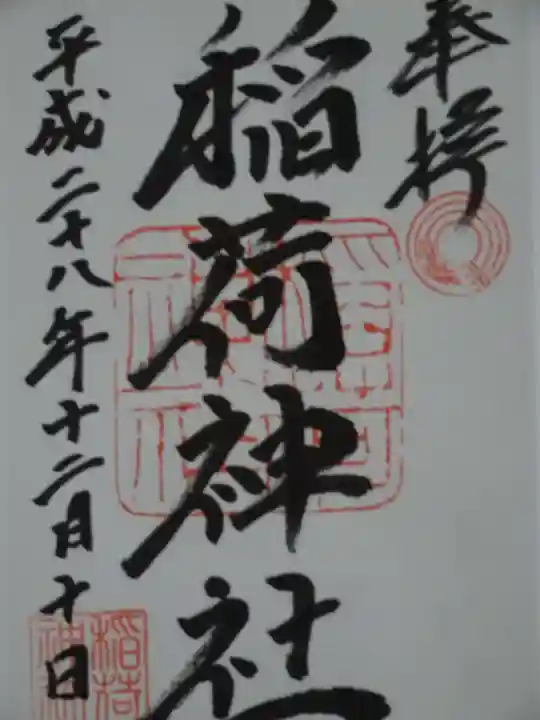 奉拝
稲荷神社
平成二十八年十二月十日
稲荷神社